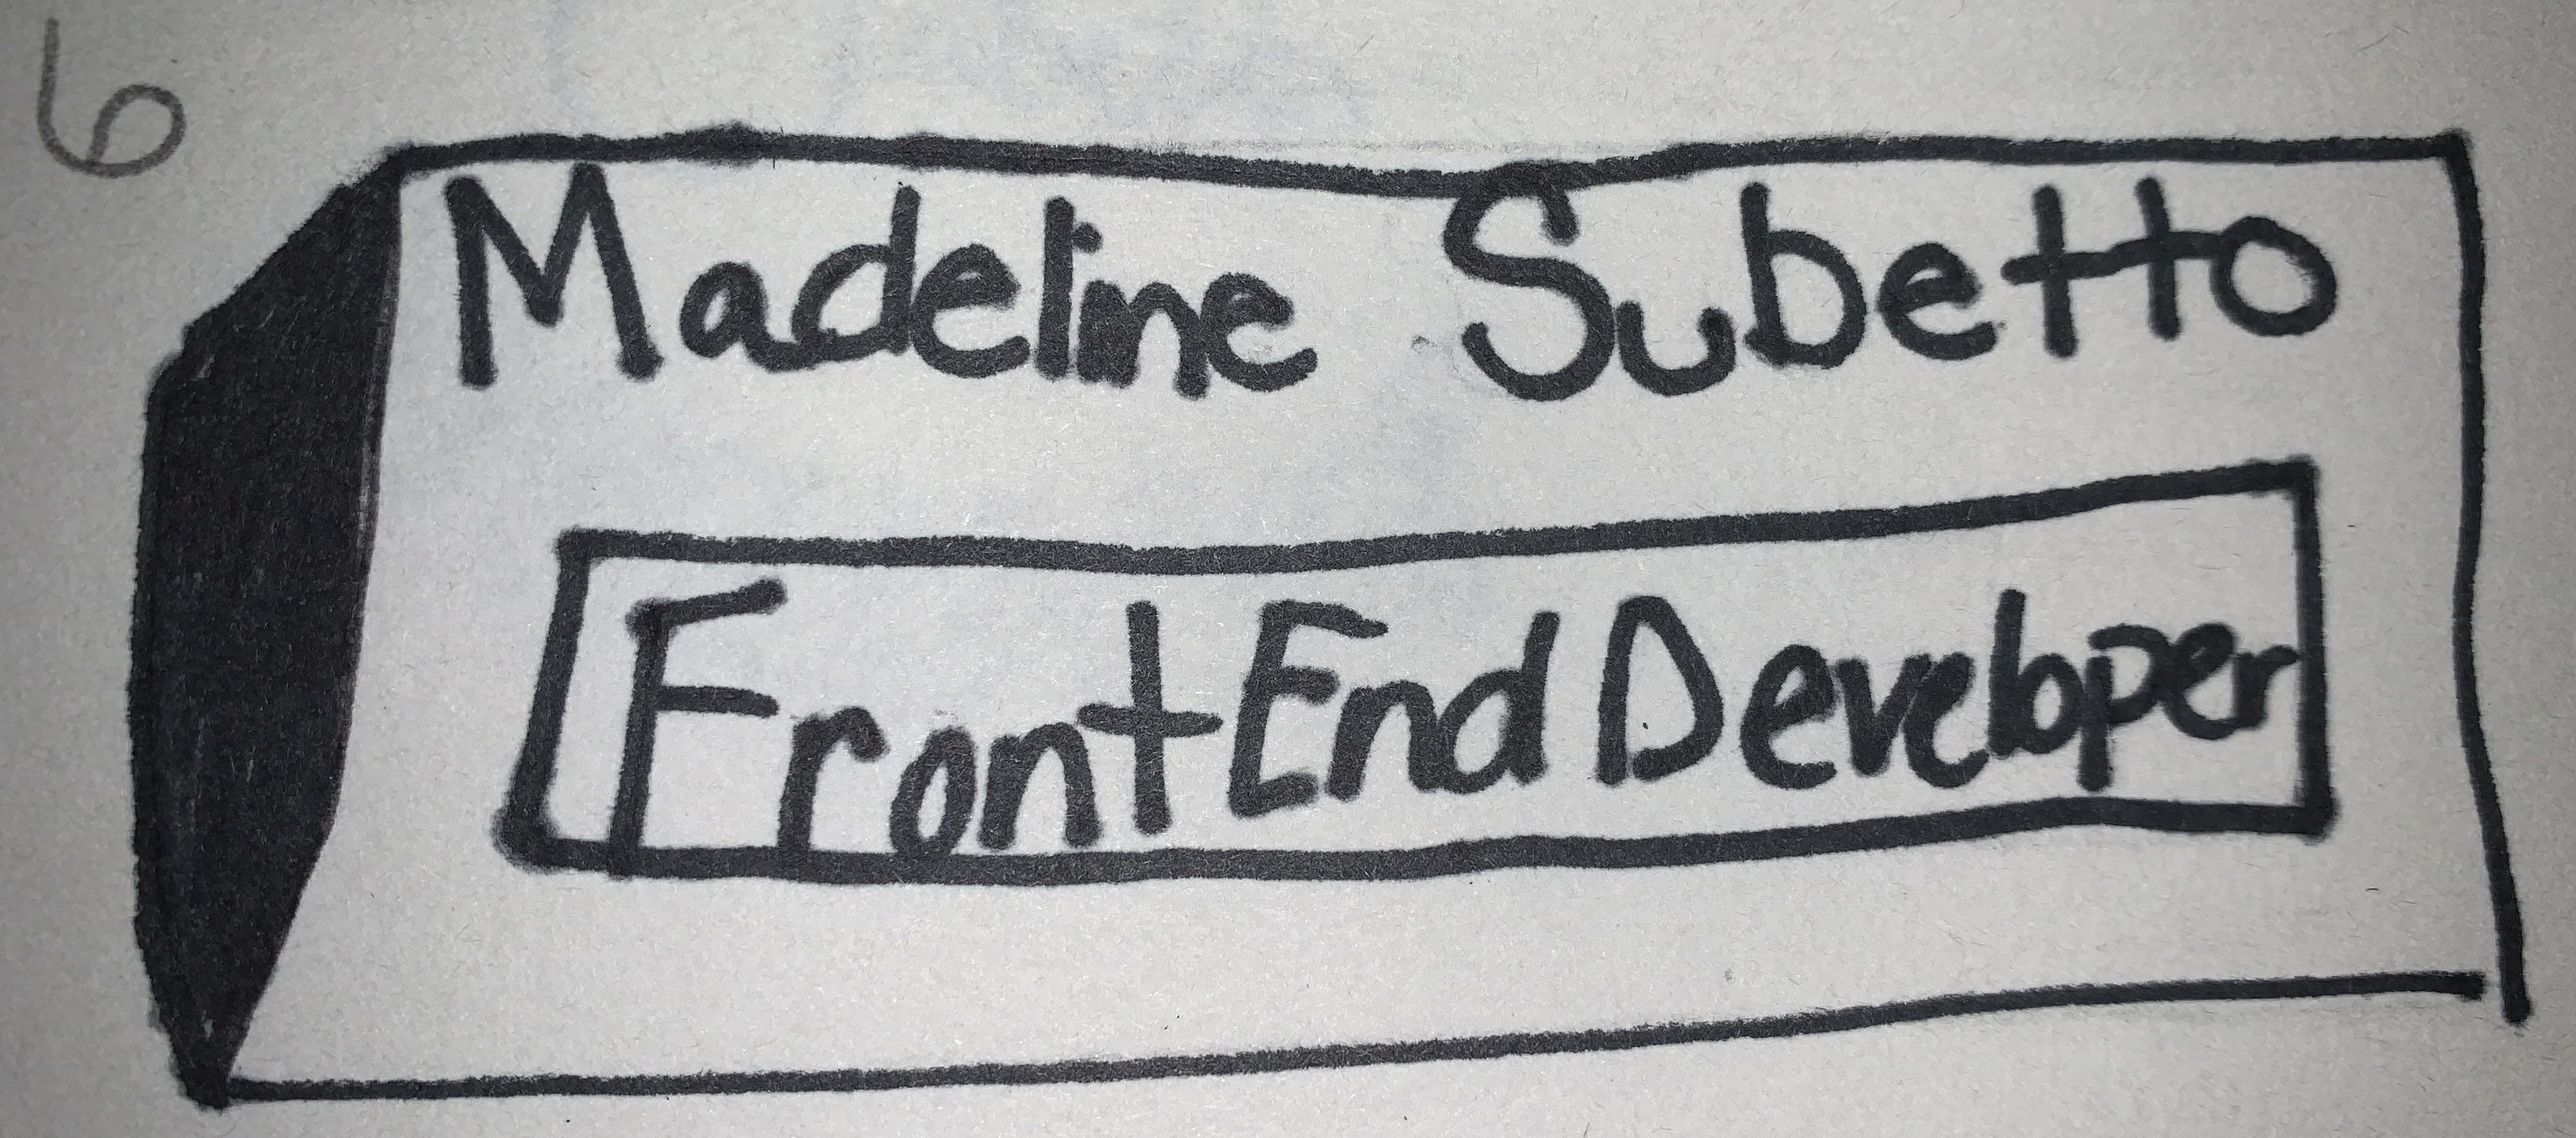 6
Madeline Subetto
Front End Developer